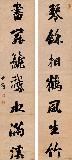 琴餘相鶴風生竹
書罷籠鵞水滿溪